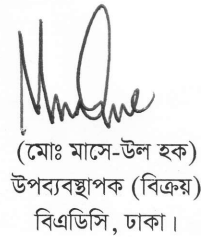 (মোঃ মাসে-উল হক)
উপব্যবস্থাপক (বিক্রয়)
বিএডিসি, ঢাকা।